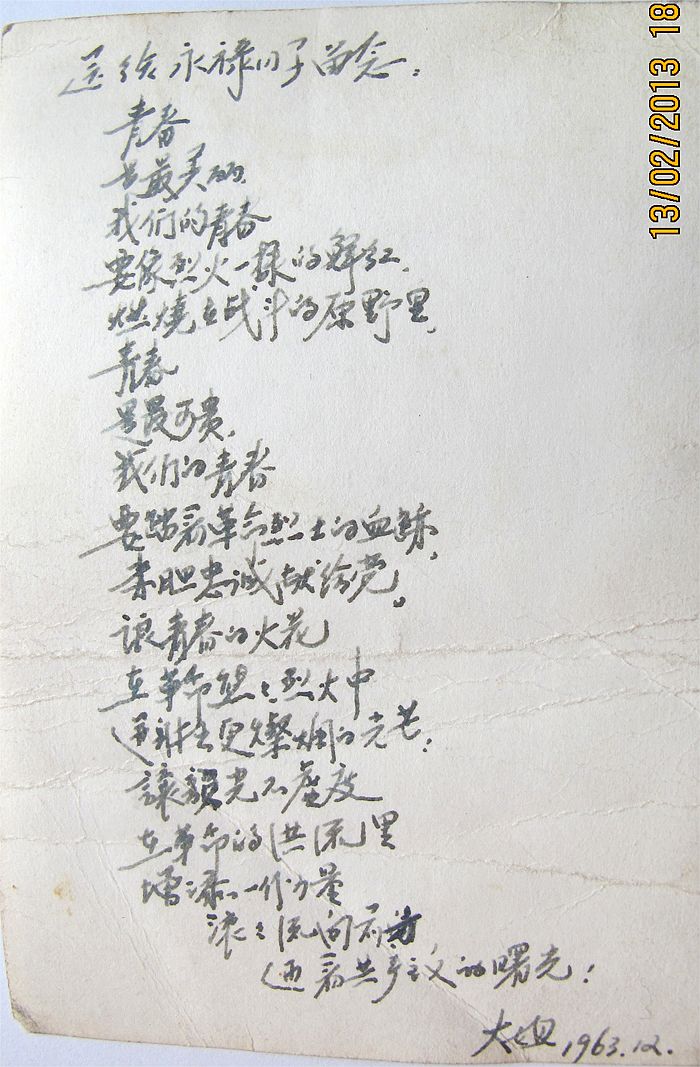 送给永禄小子留念：
青春
是最美丽，
我们的青春
要像烈火一様的鲜红，
燃燒在战斗的原野里，
青春
是最可贵，
我们的青春
要踏着革命烈士的血跡，
赤胆忠诚献给党。
讓青春的火花
在革命熊々烈火中
迸射出更燦烂的光芒；
讓韶光不虚度
在革命的洪流里
增添一份力量
滚々流向前方
迎着共产主义的曙光！
大姐 1963.12.
13/02/2013 18